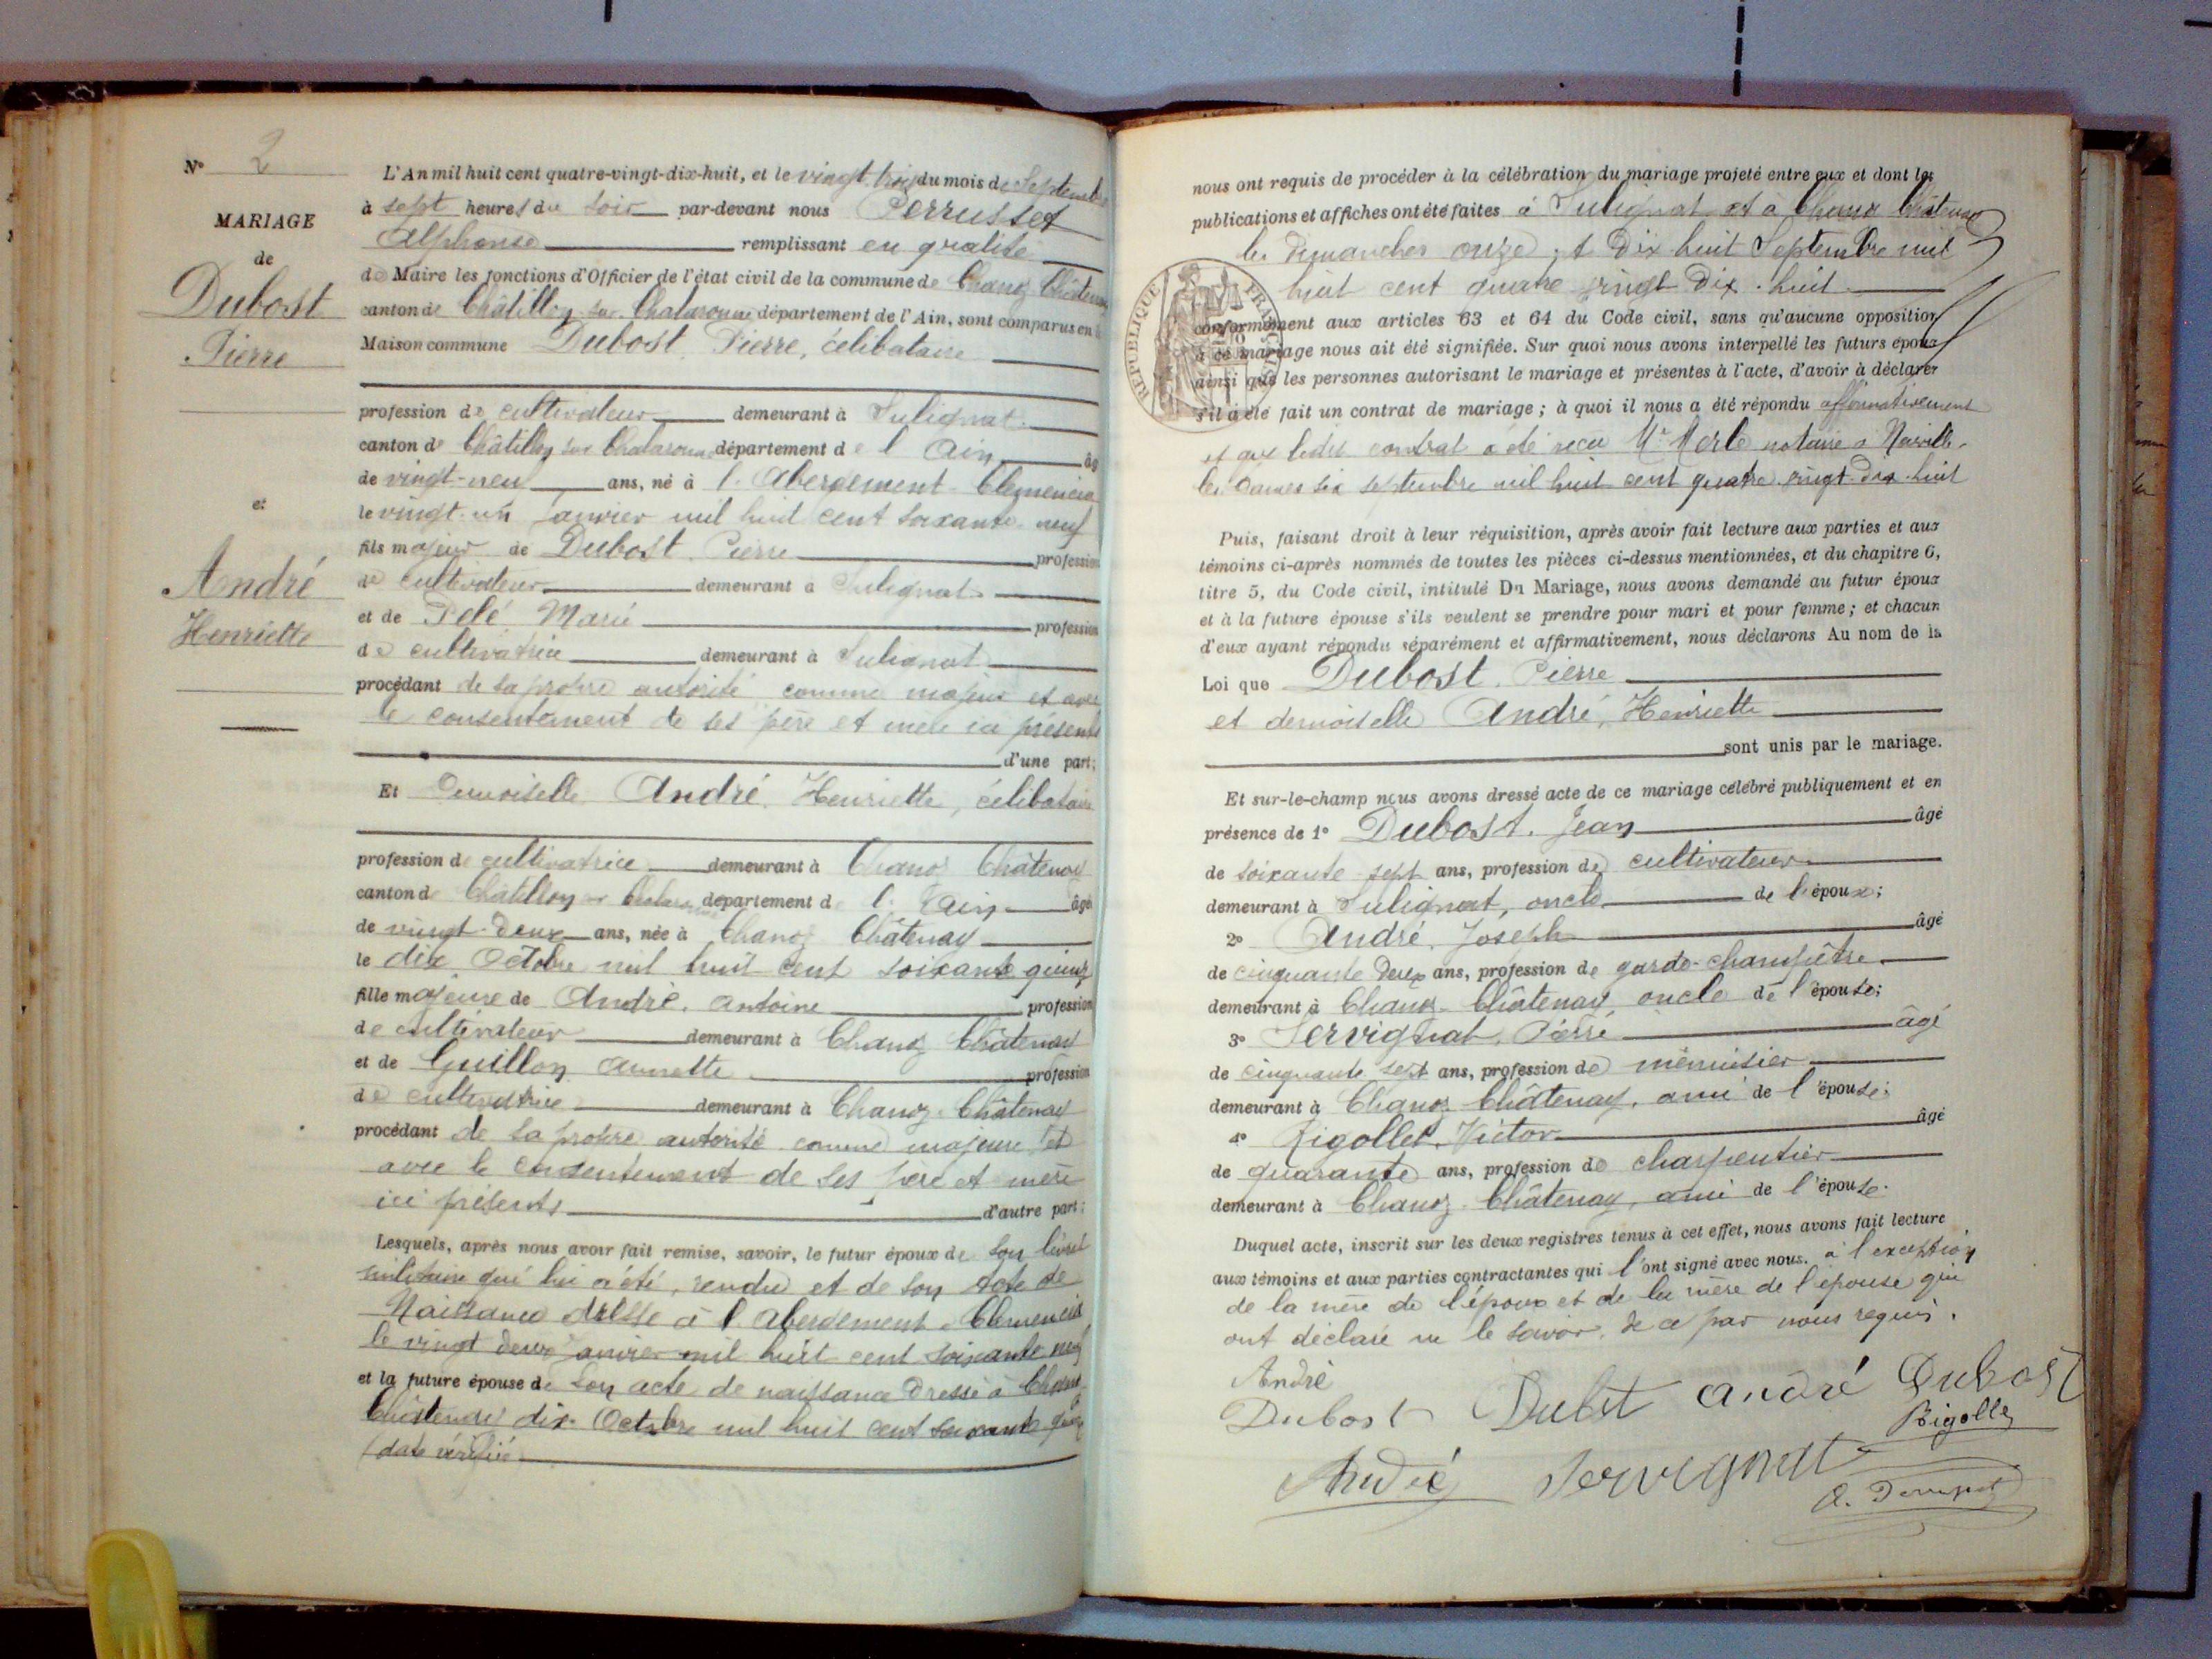 N° 2
MARIAGE
de
Dubost
Pierre
et
André
Henriette
L'An mil huit cent quatre-vingt-dix-huit, et le vingt trois du mois de Septembre
à sept heures du soir par-devant nous Perrusset
Alphonse remplissant en qualité
de Maire les fonctions d'Officier de l'état civil de la commune de Chanoz Châtenay
canton de Châtillon sur Chalaronne département de l'Ain, sont comparus en la
Maison commune Dubost Pierre, célibataire
profession de cultivateur demeurant à Sulignat
canton de Châtillon sur Chalaronne département de l'Ain âgé
de vingt-neuf ans, né à l'Abergement Clémenciat
le vingt-un Janvier mil huit cent soixante-neuf
fils majeur de Dubost Pierre profession
de cultivateur demeurant à Sulignat
et de Pelé Marie profession
de cultivatrice demeurant à Sulignat
procédant de sa propre autorité comme majeur et avec
le consentement de ses père et mère ici présents
d'une part;
Et Demoiselle André Henriette, célibataire
profession de cultivatrice demeurant à Chanoz Châtenay
canton de Châtillon sur Chalaronne département de l'Ain âgée
de vingt-deux ans, née à Chanoz Châtenay
le dix Octobre mil huit cent soixante quinze
fille majeure de André Antoine profession
de cultivateur demeurant à Chanoz Châtenay
et de Guillon Annette profession
de cultivatrice demeurant à Chanoz Châtenay
procédant de sa propre autorité comme majeure et
avec le consentement de ses père et mère
ici présents d'autre part;
Lesquels, après nous avoir fait remise, savoir, le futur époux de son livret
militaire qui lui a été rendu et de son acte de
Naissance dressé à l'Abergement Clémenciat
le vingt deux Janvier mil huit cent soixante neuf
et la future épouse de son acte de naissance dressé à Chanoz
Châtenay dix Octobre mil huit cent soixante quinze
(date vérifiée
nous ont requis de procéder à la célébration du mariage projeté entre eux et dont les
publications et affiches ont été faites à Sulignat et à Chanoz Châtenay
les dimanches onze et Dix huit Septembre mil
huit cent quatre vingt Dix-huit
RÉPUBLIQUE FRANÇAISE
conformément aux articles 63 et 64 du Code civil, sans qu'aucune opposition
à ce mariage nous ait été signifiée. Sur quoi nous avons interpellé les futurs époux
ainsi que les personnes autorisant le mariage et présentes à l'acte, d'avoir à déclarer
s'il a été fait un contrat de mariage; à quoi il nous a été répondu affirmativement
et que ledit contrat a été reçu Me Merle notaire à Neuville-
les-Dames six septembre mil huit cent quatre vingt-dix-huit
Puis, faisant droit à leur réquisition, après avoir fait lecture aux parties et aux
témoins ci-après nommés de toutes les pièces ci-dessus mentionnées, et du chapitre 6,
titre 5, du Code civil, intitulé Du Mariage, nous avons demandé au futur époux
et à la future épouse s'ils veulent se prendre pour mari et pour femme; et chacun
d'eux ayant répondu séparément et affirmativement, nous déclarons Au nom de la
Loi que Dubost Pierre
et demoiselle André, Henriette
sont unis par le mariage.
Et sur-le-champ nous avons dressé acte de ce mariage célébré publiquement et en
présence de 1° Dubost Jean âgé
de soixante-sept ans, profession de cultivateur
demeurant à Sulignat, oncle de l'époux;
2° André Joseph âgé
de cinquante Deux ans, profession de garde-champêtre
demeurant à Chanoz Châtenay, oncle de l'épouse;
3° Servignat Pierre âgé
de cinquante sept ans, profession de menuisier
demeurant à Chanoz Châtenay, ami de l'épouse;
4° Rigollet Victor âgé
de quarante ans, profession de charpentier
demeurant à Chanoz Châtenay, ami de l'épouse.
Duquel acte, inscrit sur les deux registres tenus à cet effet, nous avons fait lecture
aux témoins et aux parties contractantes qui l'ont signé avec nous. à l'exception
de la mère de l'époux et de la mère de l'épouse qui
ont déclaré ne le savoir, de ce par nous requis.
André
Dubost Dubost André Dubost
Rigollet
André Servignat